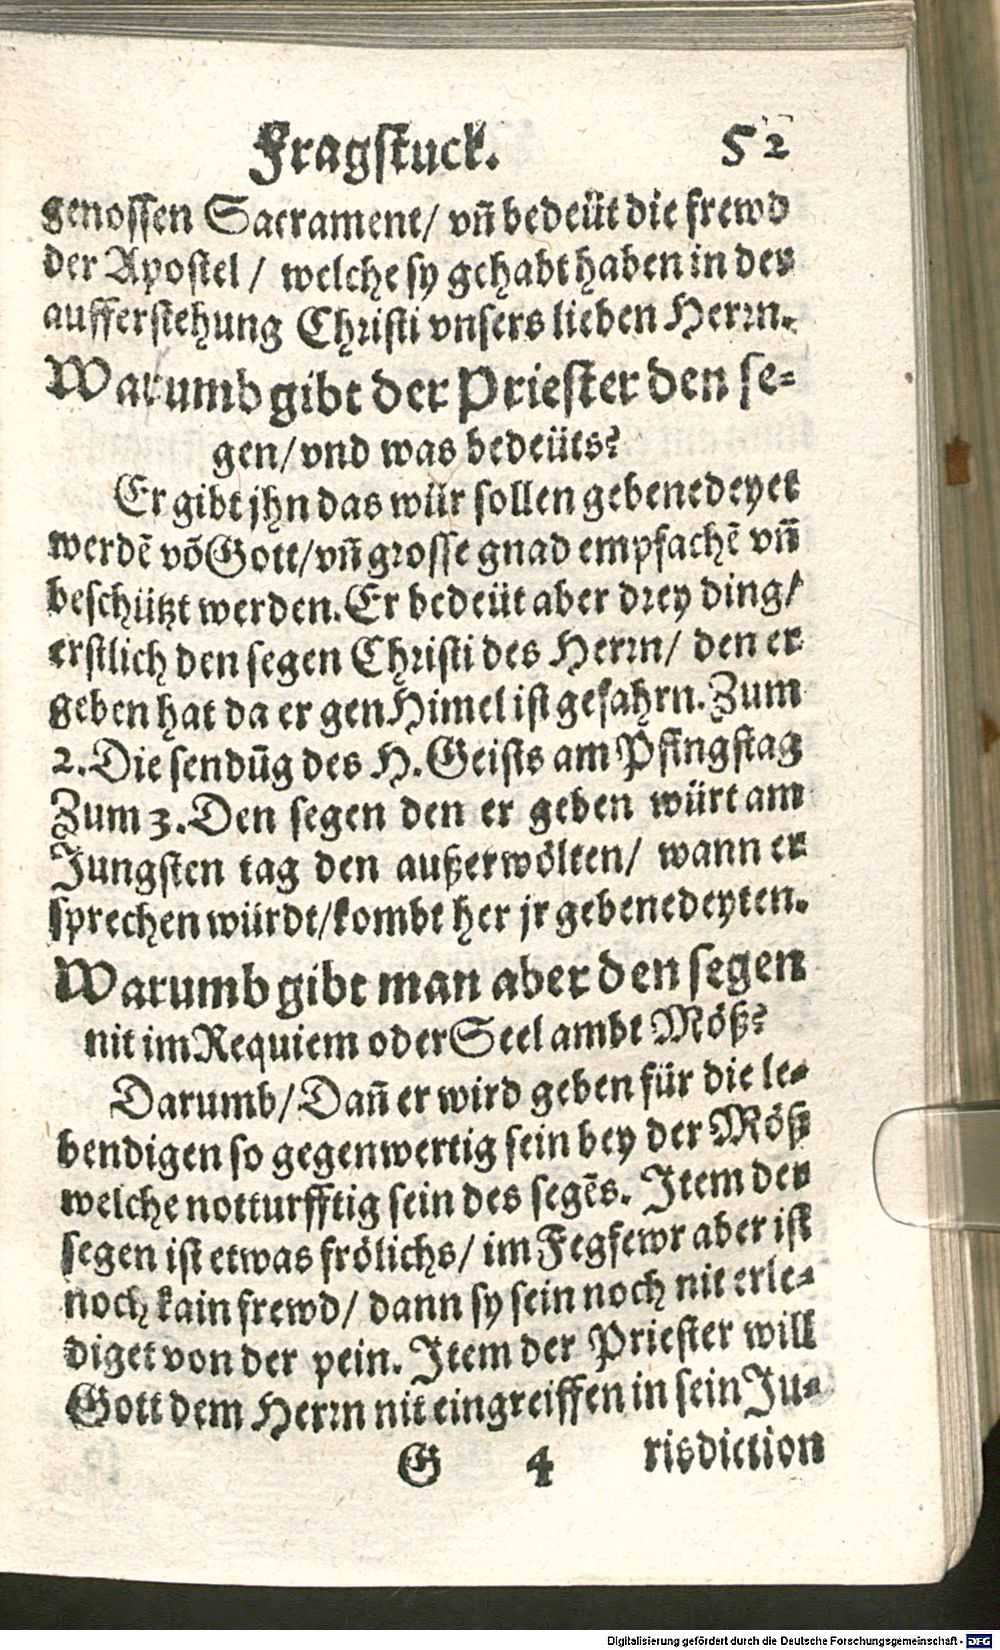 Fragstuck. 52
genossen Sacrament/ vñ bedeüt die frewd
der Apostel/ welche sy gehabt haben in der
aufferstehung Christi vnsers lieben Herrn.
Warumb gibt der Priester den se-
gen/ vnd was bedeüts?
Er gibt jhn das wür sollen gebenedeyet
werdē võ Gott/ vñ grosse gnad empfachē vñ
beschützt werden. Er bedeüt aber drey ding/
erstlich den segen Christi des Herrn/ den er
geben hat da er gen Himel ist gefahrn. Zum
2. Die sendūg des H. Geists am Pfingstag
Zum 3. Den segen den er geben würt am
Jungsten tag den außerwölten/ wann er
sprechen würdt/ kombt her jr gebenedeyten.
Warumb gibt man aber den segen
nit im Requiem oder Seel ambt Möß?
Darumb/ Dañ er wird geben für die le-
bendigen so gegenwertig sein bey der Möß
welche notturfftig sein des segēs. Item der
segen ist etwas frölichs/ im Fegfewr aber ist
noch kain frewd/ dann sy sein noch nit erle-
diget von der pein. Item der Priester will
Gott dem Herrn nit eingreiffen in sein Ju-
G 4 risdiction
Digitalisierung gefördert durch die Deutsche Forschungsgemeinschaft - DFG